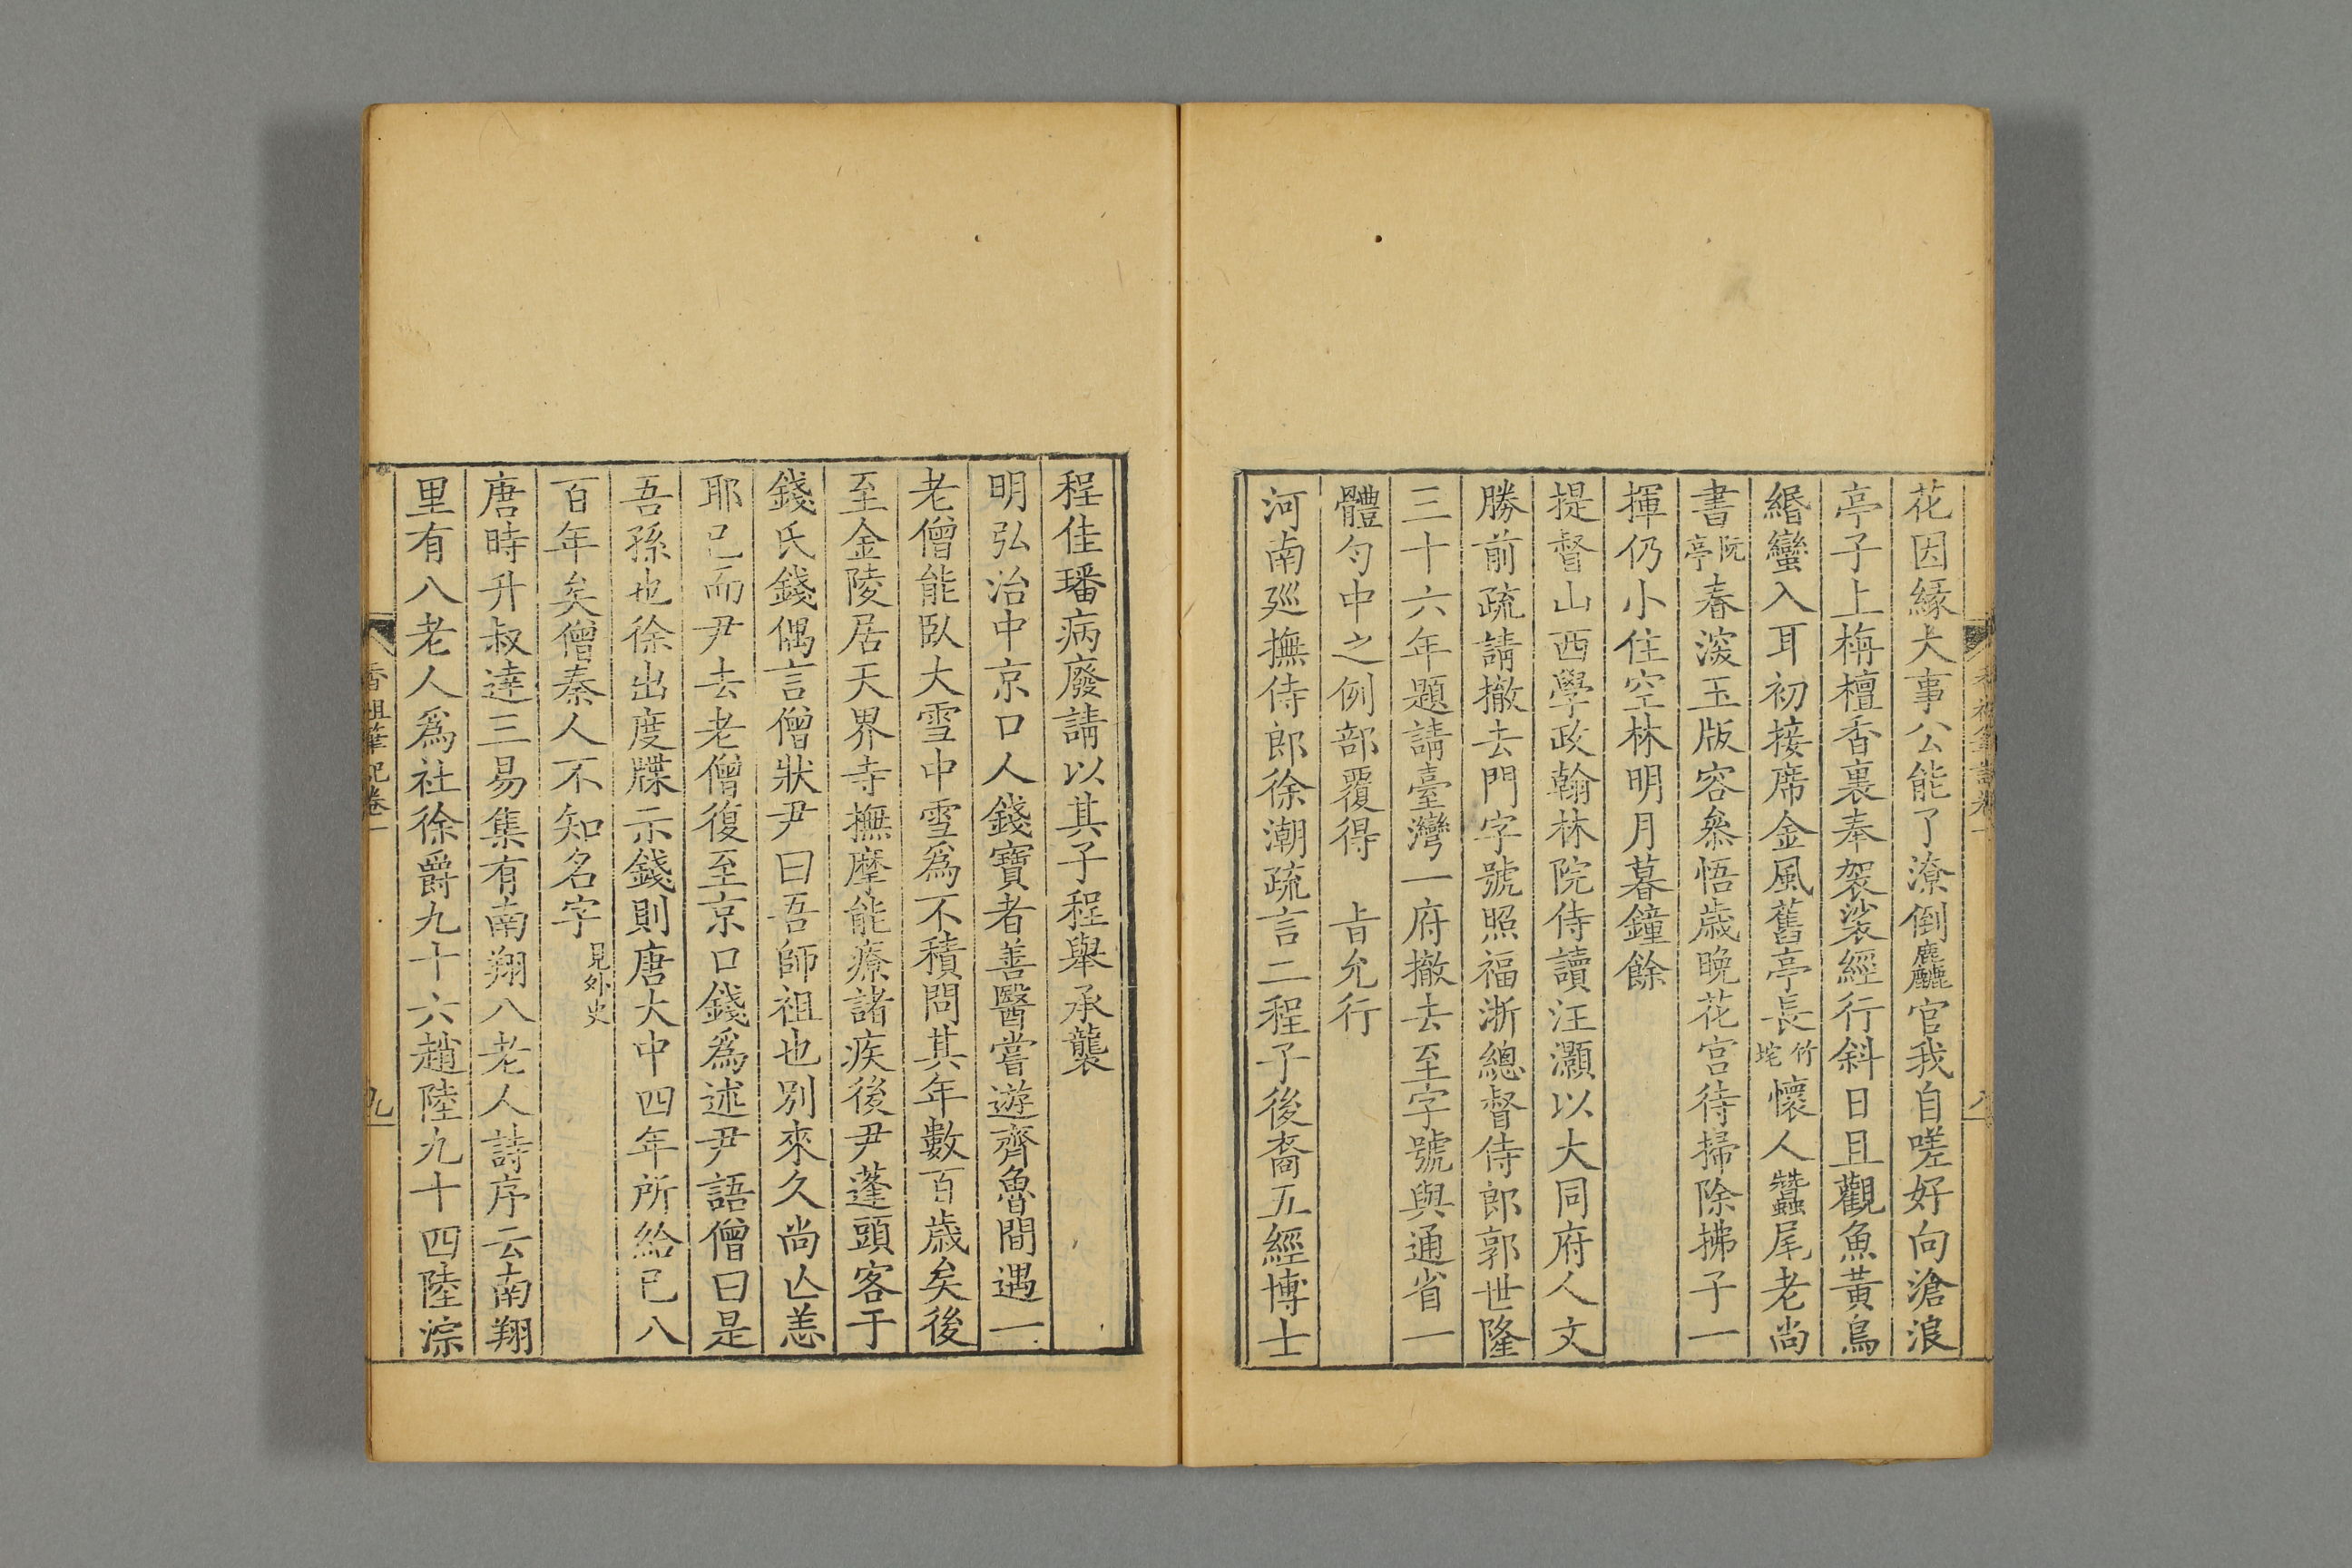 花因緣大事公能了潦倒麤官我自嗟好向滄浪
亭子上栴檀香裏奉袈裟經行斜日且觀魚黃鳥
緡蠻入耳初接席金風舊亭長竹垞懷人蠶尾老尚
書阮亭春深玉版容叅悟歲晚花宮待掃除拂子一
揮仍小住空林明月暮鐘餘
提督山西學政翰林院侍讀汪灝以大同府人文
勝前疏請撤去門字號照福浙總督侍郎郭世隆
三十六年題請臺灣一府撤去至字號與通省一
體勻中之例部覆得　旨允行
河南廵撫侍郎徐潮疏言二程子後裔五經博士
程佳璠病廢請以其子程舉承襲
明弘治中京口人錢寶者善醫嘗遊齊魯間遇一
老僧能臥大雪中雪爲不積問其年數百歲矣後
至金陵居天界寺撫摩能療諸疾後尹蓬頭客于
錢氏錢偶言僧狀尹曰吾師祖也別來久尚亾恙
耶已而尹去老僧復至京口錢爲述尹語僧曰是
吾孫也徐出度牒示錢則唐大中四年所給已八
百年矣僧秦人不知名字見外史
唐時升叔達三易集有南翔八老人詩序云南翔
里有八老人爲社徐爵九十六趙陸九十四陸淙
香祖筆記卷一
九